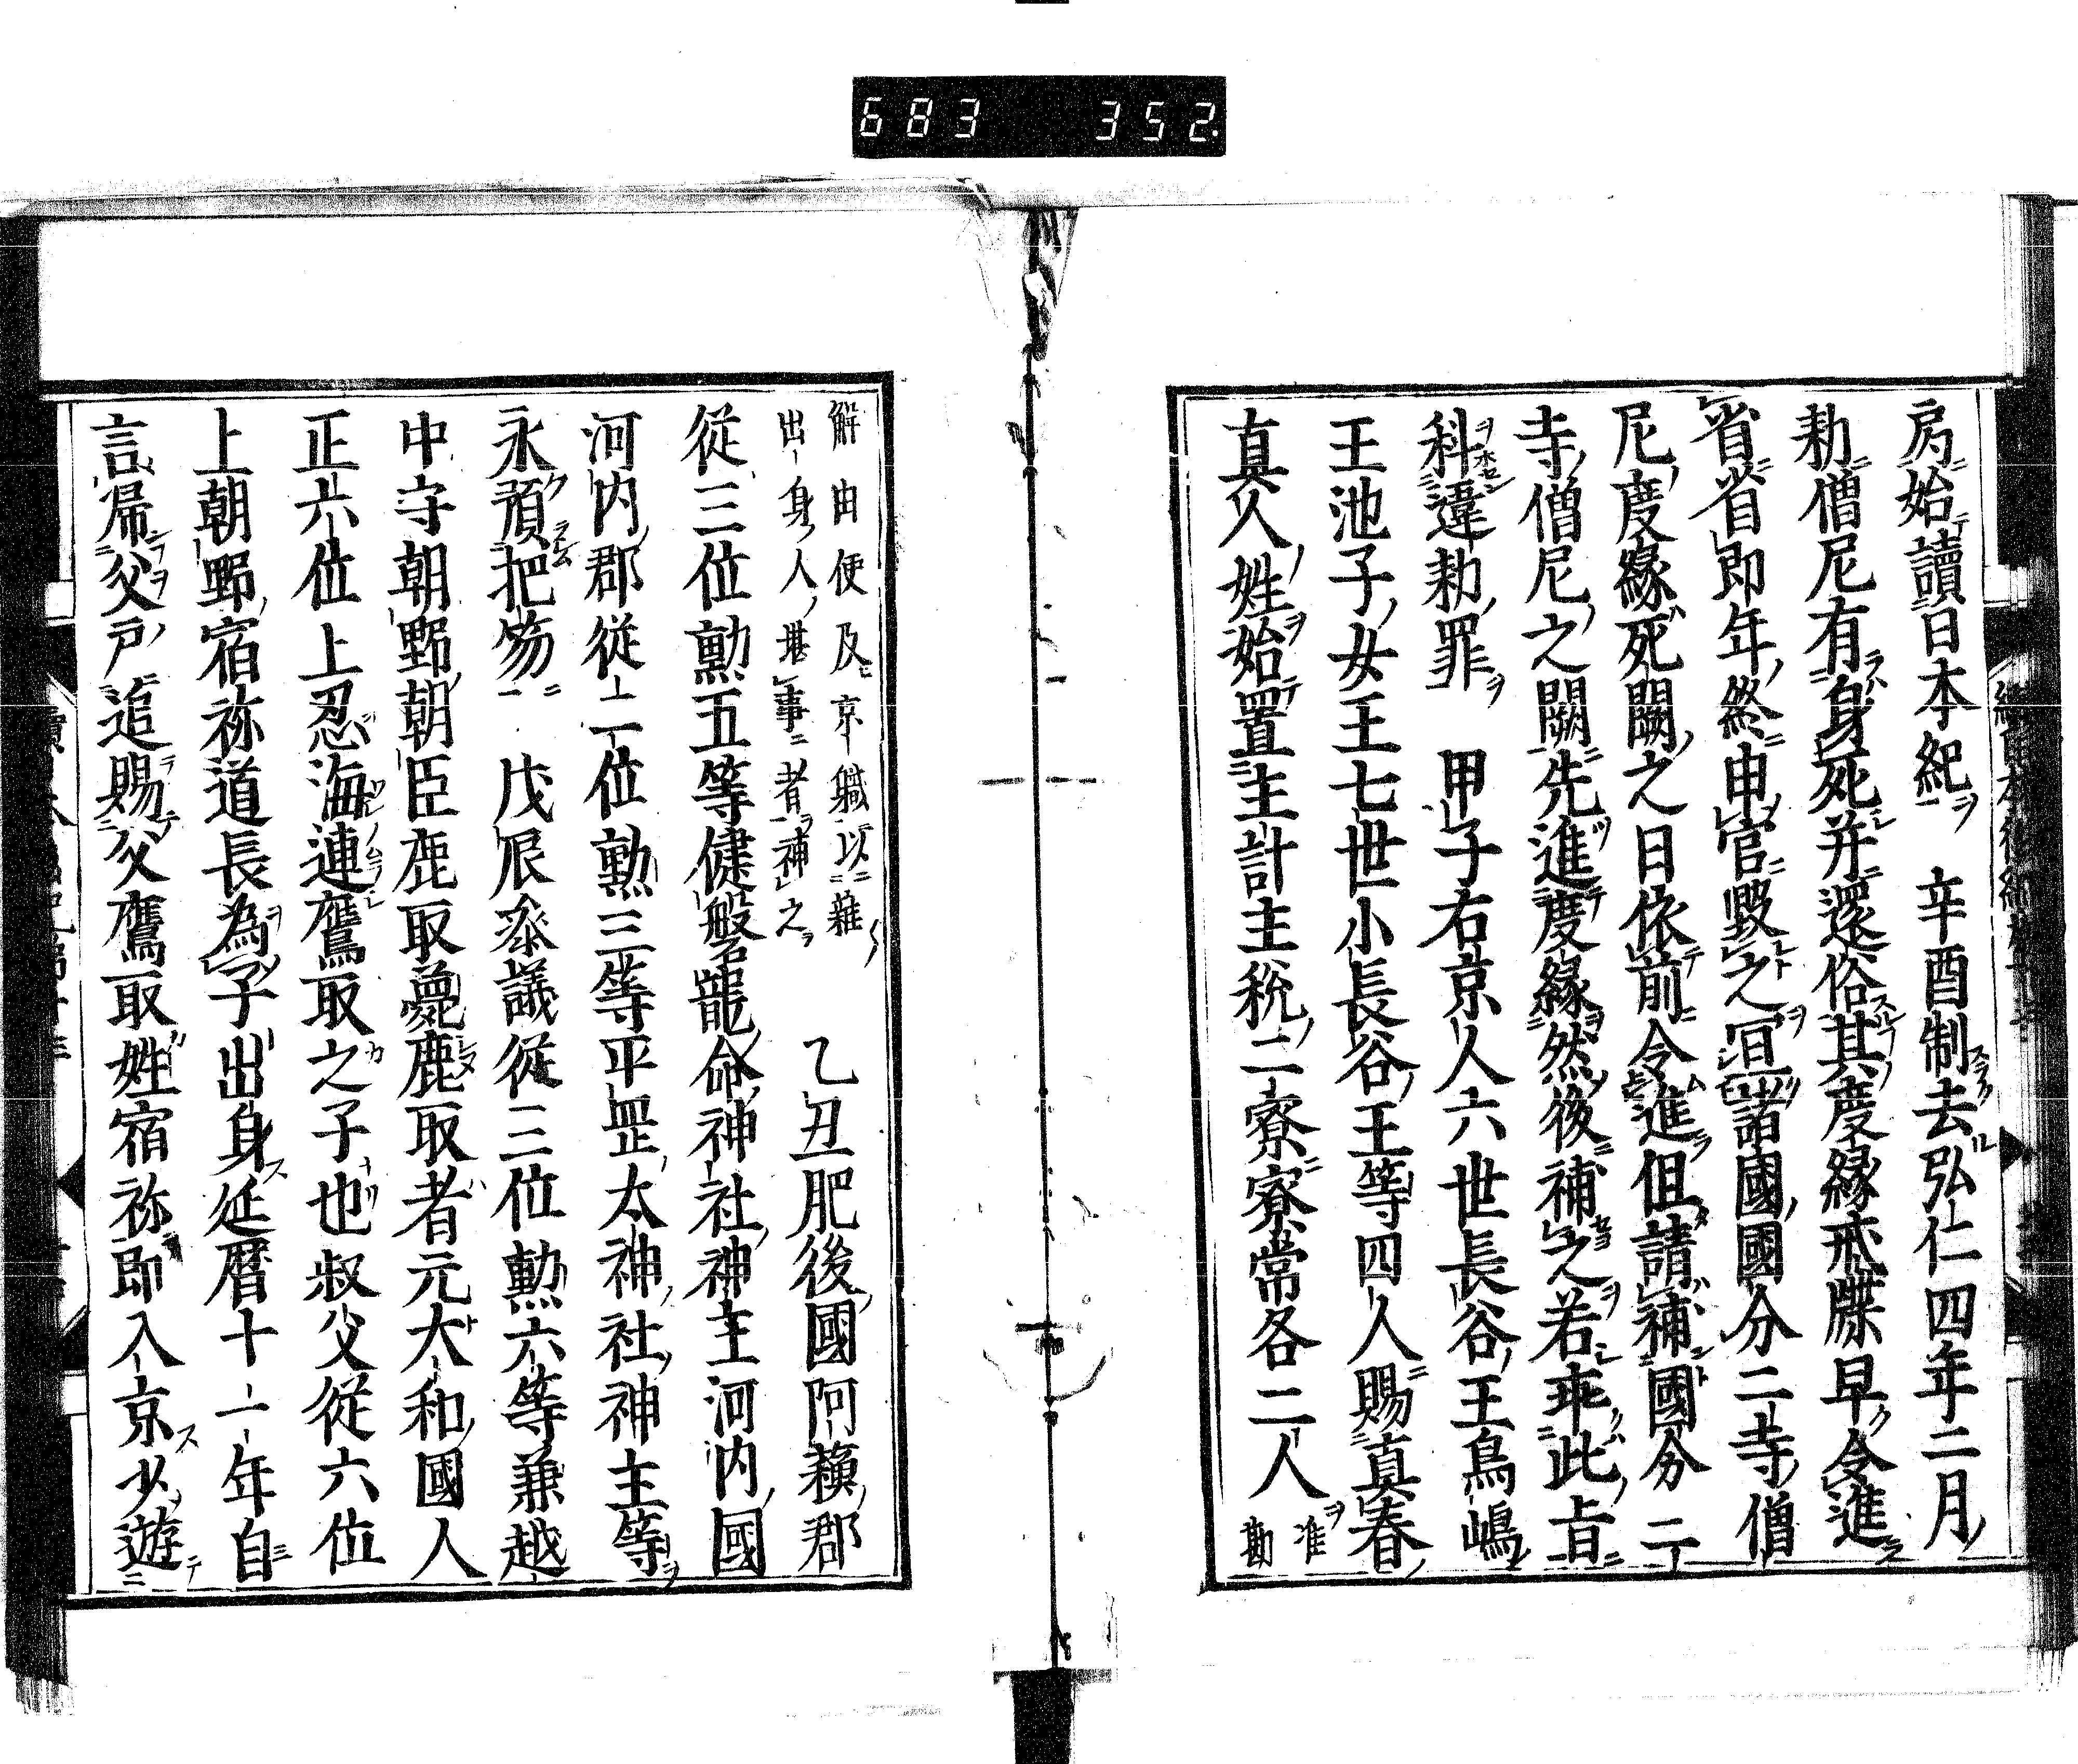 683 352
房始讀日本紀 辛酉制去弘仁四年二月
勅僧尼有身死并還俗其度縁戒牒早令進
省省即年終申官毀之冝諸國國分二寺僧
尼度縁死闕之日依前令進但請補國分二
寺僧尼之闕先進度縁然後補之若乖此旨
科違勅罪 甲子右京人六世長谷王鳥嶋
王池子女王七世小長谷王等四人賜真春
真人姓始置主計主税二寮寮常各二人准勘
解由便及京軄以雜
出身人堪事者神之
乙丑肥後國阿蘓郡
從三位勳五等健磐龍命神社神主河内國
河内郡從二位勳三等平岡太神社神主等
永預把笏 戊辰叅議從三位勳六等兼越
中守朝野朝臣鹿取薨鹿取者元大和國人
正六位上忍海連鷹取之子也叔父從六位
上朝野宿祢道長為子出身延暦十一年自
言帰父戸追賜父鷹取姓宿祢即入京少遊